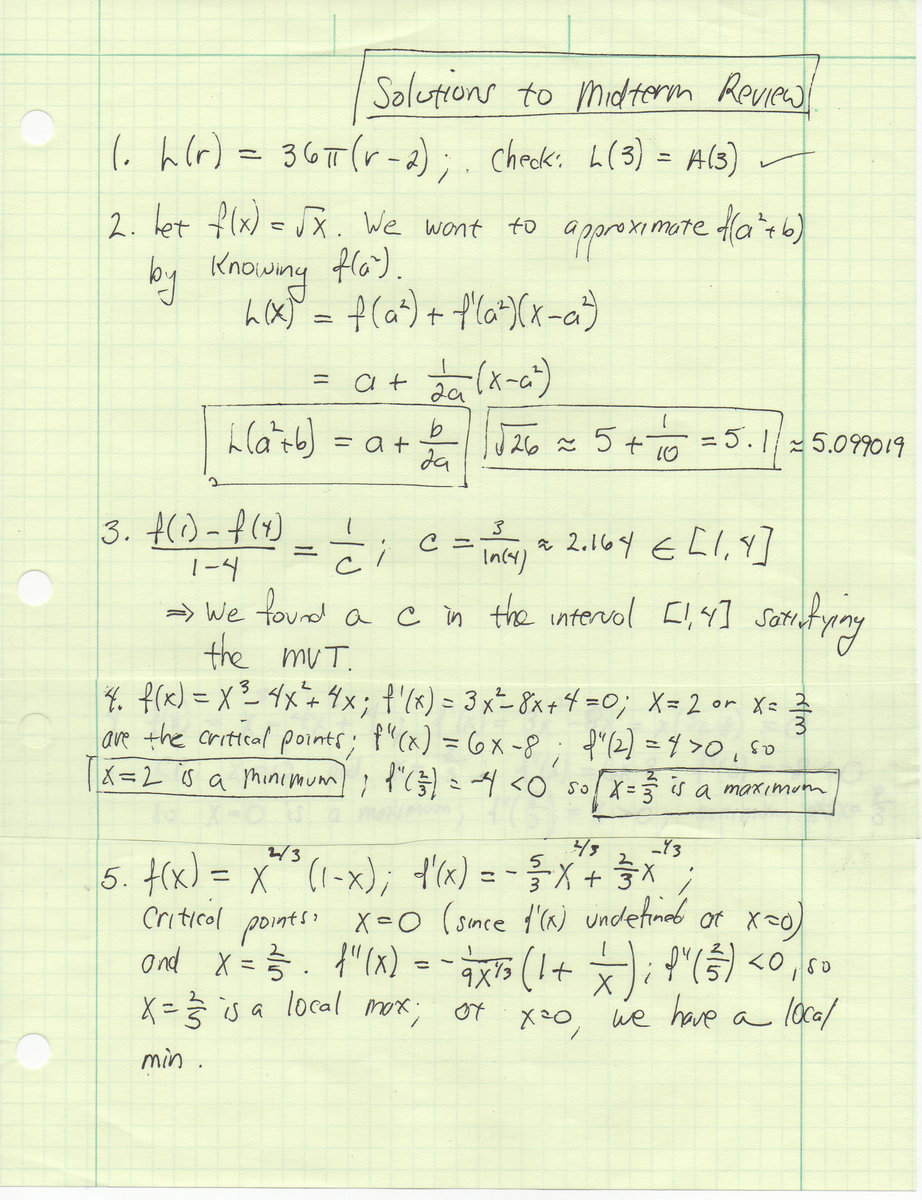 Solutions to Midterm Review
1. L(r) = 36π(r-2); . Check: L(3) = A(3) ✓
2. Let f(x) = √x. We want to approximate f(a²+b)
by Knowing f(a²).
L(x) = f(a²) + f'(a²)(x-a²)
= a + 1/2a (x-a²)
L(a²+b) = a + b/2a √26 ≈ 5 + 1/10 = 5.1 ≈ 5.099019
3. f(1) - f(4) / 1-4 = 1/c ; c = 3/ln(4) ≈ 2.164 ∈ [1,4]
⇒ We found a c in the interval [1,4] satisfying
the MVT.
4. f(x) = x³-4x²+4x; f'(x) = 3x²-8x+4=0; x=2 or x=2/3
are the critical points; f"(x) = 6x-8; f"(2) = 4>0, so
x=2 is a minimum; f"(2/3) = -4 <0 so x=2/3 is a maximum
5. f(x) = x^2/3 (1-x); f'(x) = -5/3 x^2/3 + 2/3 x^-1/3;
Critical points: x=0 (since f'(x) undefined at x=0)
and x = 2/5. f"(x) = -2/9x^1/3 (1+ 1/x); f"(2/5) <0, so
x=2/5 is a local max; at x=0, we have a local
min.